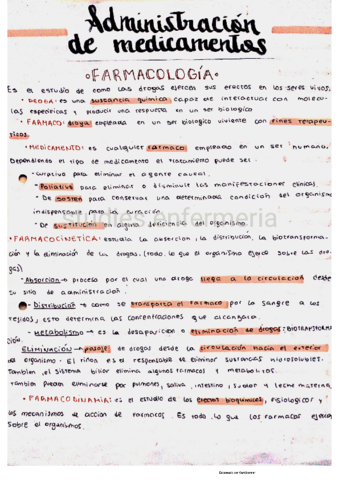 Administración
de medicamentos
◦FARMACOLOGÍA◦
Es el estudio de como las drogas ejercen sus efectos en los seres vivos.
• DROGA: es una sustancia química capaz de interactuar con molecu-
las especificas y producir una respuesta en un ser biologico
• FARMACO: droga empleada en un ser biologico viviente con fines terapeu-
ticos.
• MEDICAMENTO: es cualquier farmaco empleado en un ser humano.
Dependiendo el tipo de medicamento el tratamiento puede ser:
- Curativo para eliminar el agente causal.
- Paliativo para eliminar o disminuir las manifestaciones clinicas.
- De sosten para conservar una determinada condicion del organismo
indispensable para la curación.
- De sustitucion en alguna deficiencia del organismo.
studies enfermeria
• FARMACOCINETICA: estudia la absorcion, la distribucion, la biotransforma-
ción y la eliminación de las drogas. (todo lo que el organismo ejerce sobre las dro-
gas)
- Absorcion → proceso por el cual una droga llega a la circulacion desde
su sitio de administración.
- Distribucion → como se transporta el farmaco por la sangre a los
tejidos, esto determina las concentraciones que alcanzara.
- Metabolismo → es la desaparicion o eliminacion de drogas (biotransforma-
ción.
ELIMINACIÓN → pasaje de drogas desde la circulación hacia el exterior
de organismo. El riñon es el responsable de eliminar sustancias hidrosolubles.
Tambien, el sistema biliar elimina algunos farmacos y metabolitos.
Tambien pueden eliminarse por pulmones, saliva, intestino, sudor y leche materna.
• FARMACODINAMIA: es el estudio de los efectos bioquimicos, fisiologicos y
los mecanismos de accion de farmacos. Es todo lo que los farmacos ejercen
sobre el organismos.
Escaneado con CamScanner